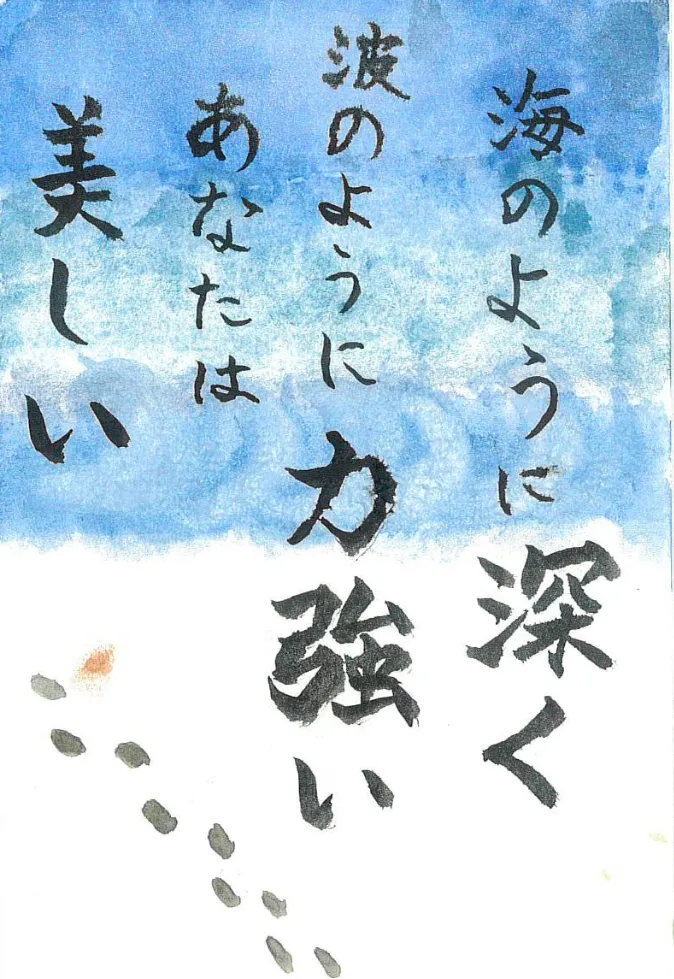 海のように深く
波のように力強い
あなたは
美しい